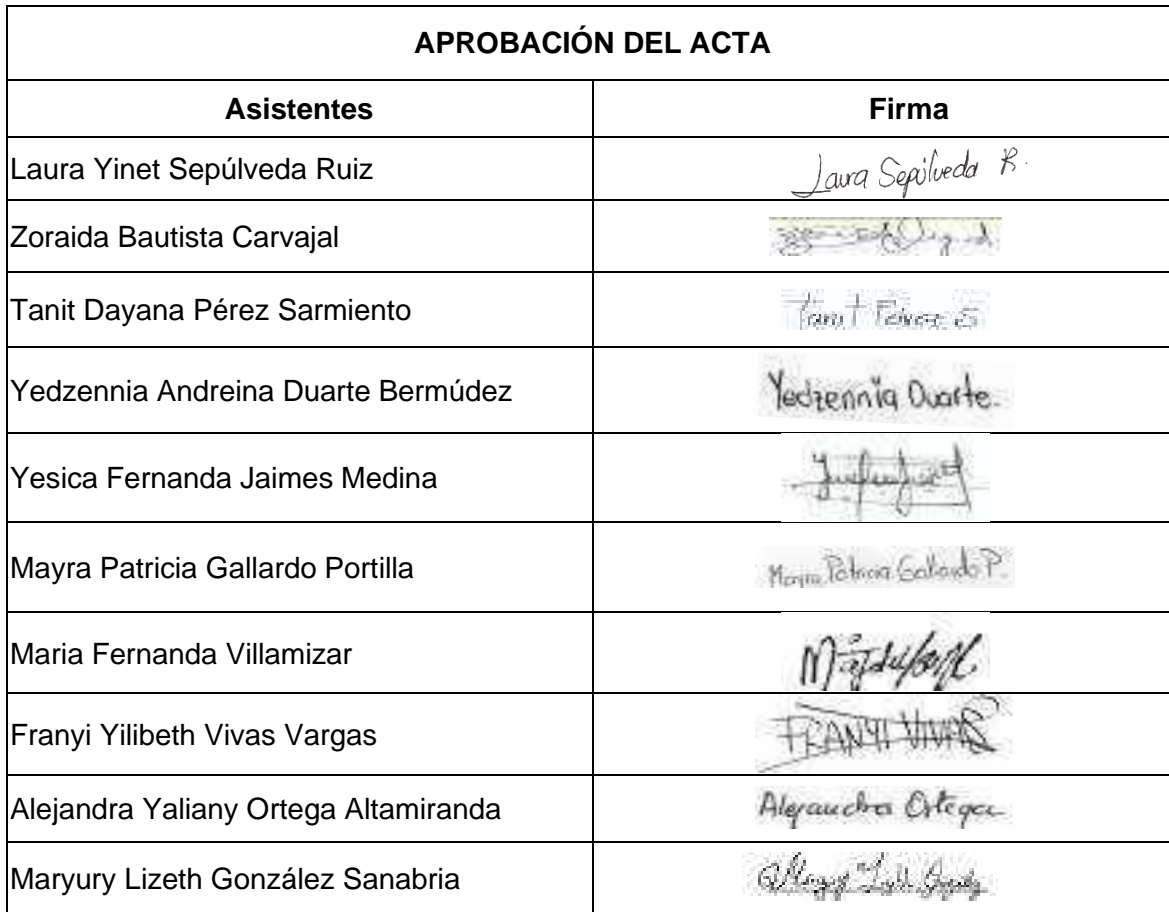 APROBACIÓN DEL ACTA
Asistentes Firma
Laura Yinet Sepúlveda Ruiz Laura Sepúlveda R.
Zoraida Bautista Carvajal
Tanit Dayana Pérez Sarmiento Tanit Pérez S
Yedzennia Andreina Duarte Bermúdez Yedzennia Duarte.
Yesica Fernanda Jaimes Medina
Mayra Patricia Gallardo Portilla Mayra Patricia Gallardo P.
Maria Fernanda Villamizar
Franyi Yilibeth Vivas Vargas FRANYI VIVAS
Alejandra Yaliany Ortega Altamiranda Alejandra Ortega
Maryury Lizeth González Sanabria